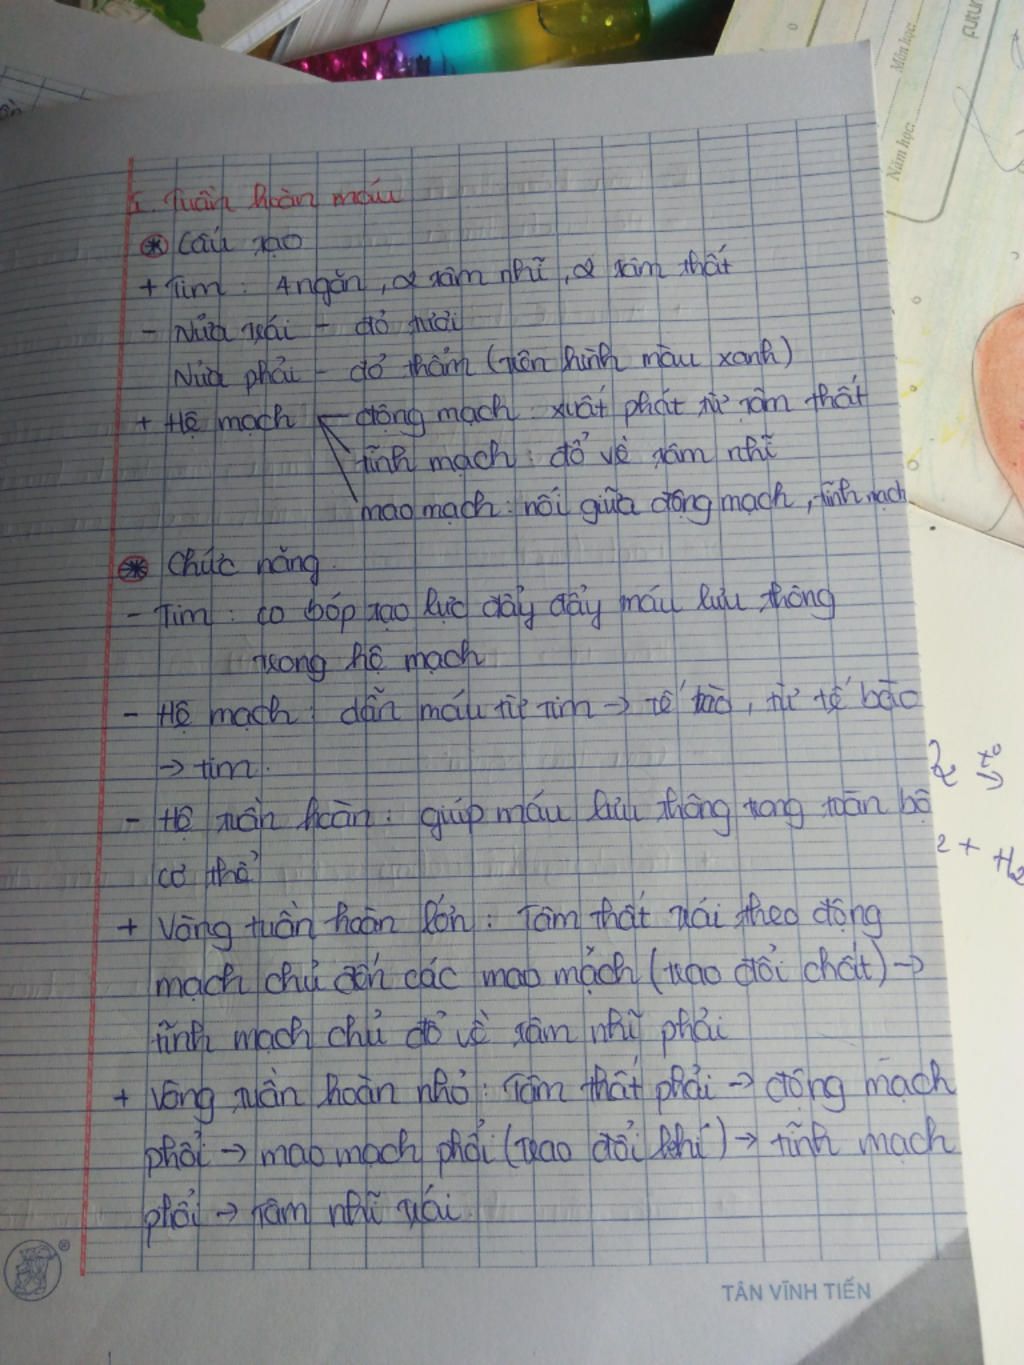 Môn học:
Năm học:
I. Tuần hoàn máu
* Cấu tạo
+ Tim: 4 ngăn, 2 tâm nhĩ, 2 tâm thất
- Nửa trái - đỏ tươi
Nửa phải - đỏ thẫm (trên hình màu xanh)
+ Hệ mạch động mạch: xuất phát từ tâm thất
tĩnh mạch: đổ về tâm nhĩ
mao mạch: nối giữa động mạch, tĩnh mạch
* Chức năng.
- Tim: co bóp tạo lực đẩy đẩy máu lưu thông
trong hệ mạch
- Hệ mạch: dẫn máu từ tim → tế bào, từ tế bào
→ tim.
- Hệ tuần hoàn: giúp máu lưu thông trong toàn bộ
cơ thể
+ Vòng tuần hoàn lớn: Tâm thất trái theo động
mạch chủ đến các mao mạch (trao đổi chất) →
tĩnh mạch chủ đổ về tâm nhĩ phải
+ Vòng tuần hoàn nhỏ: Tâm thất phải → động mạch
phổi → mao mạch phổi (trao đổi khí) → tĩnh mạch
phổi → tâm nhĩ trái.
2 t° →
2 + H2
TÂN VĨNH TIẾN